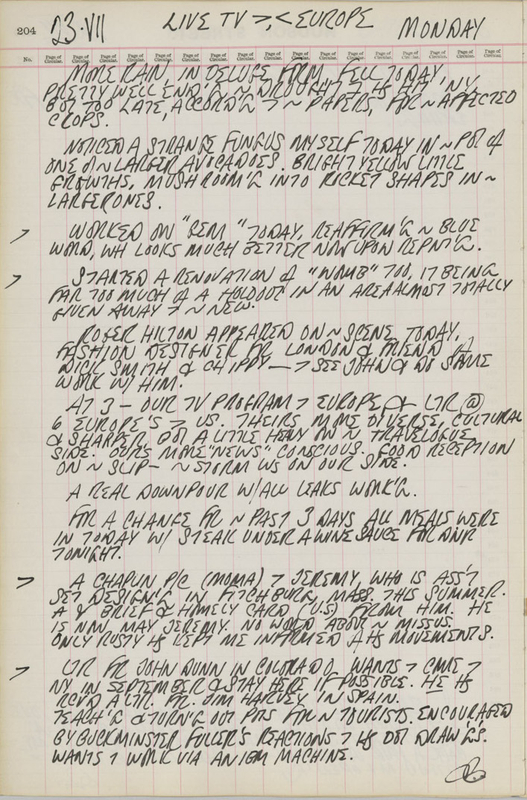 204 23·VII LIVE TV →,← EUROPE MONDAY
No. Page of Circular. Page of Circular. Page of Circular. Page of Circular. Page of Circular. Page of Circular. Page of Circular. Page of Circular. Page of Circular. Page of Circular. Page of Circular. Page of Circular. Page of Circular. Page of Circular. Page of Circular. Page of Circular.
MORE RAIN, IN DELUGE FORM, FELL TODAY
PRETTY WELL END'G ~ DROUGHT IN NY
BUT TOO LATE, ACCORD'G > ~ PAPERS, FOR ~ AFFECTED
CROPS.
NOTICED A STRANGE FUNGUS MYSELF TODAY IN ~ POT OF
ONE O ~ LARGER AVOCADOES. BRIGHT YELLOW LITTLE
GROWTHS, MUSHROOM'G INTO ROCKET SHAPES IN ~
LARGER ONES.
> WORKED ON "GEM" TODAY, REAFFIRM'G ~ BLUE
WORD, WH LOOKS MUCH BETTER NOW UPON REPNT'G.
> STARTED A RENOVATION OF "NUMB" TOO, IT BEING
FAR TOO MUCH OF A HOLDOUT IN AN AREA ALMOST TOTALLY
GIVEN AWAY > ~ NEW.
ROGER HILTON APPEARED ON ~ SCENE TODAY,
FASHION DESIGNER FR LONDON & FRIEND OF
DICK SMITH & CHIPPY —> SEE JOHN & DO SOME
WORK W/ HIM.
AT 3 — OUR TV PROGRAM > EUROPE & LTR @
6 EUROPE'S > US. THEIRS MORE DIVERSE, CULTURAL
& SHARPER BUT A LITTLE HEAVY ON ~ TRAVELOGUE
SIDE. OURS MORE "NEWS" CONSCIOUS. GOOD RECEPTION
ON ~ SLIP — ~ STORM WS ON OUR SIDE.
A REAL DOWNPOUR W/ ALL LEAKS WORK'G.
FOR A CHANGE FR ~ PAST 3 DAYS ALL MEALS WERE
IN TODAY W/ STEAK UNDER A WINE SAUCE FOR DNR
TONIGHT.
> A CHAPLIN P/C (MOMA) > JEREMY, WHO IS ASS'T
SET DESIGN'G IN FITCHBURG, MASS. THIS SUMMER.
A V BRIEF & HOMELY CARD (U.S) FROM HIM. HE
IS NOW MAY JEREMY. NO WORD ABOR ~ MISSUS.
ONLY RUSTY HS KEPT ME INFORMED OF HS MOVEMENTS.
> LTR FR JOHN DUNN IN COLORADO. WANTS > COME >
NY IN SEPTEMBER & STAY HERE IF POSSIBLE. HE HS
RCVD A LTR. FR. JIM HARVEY IN SPAIN.
TEACH'G & TURN'G OUT PTS FOR ~ TOURISTS. ENCOURAGED
BY BUCKMINSTER FULLER'S REACTIONS > HS DOT DRAW'GS.
WANTS > WORK VIA AN IBM MACHINE.